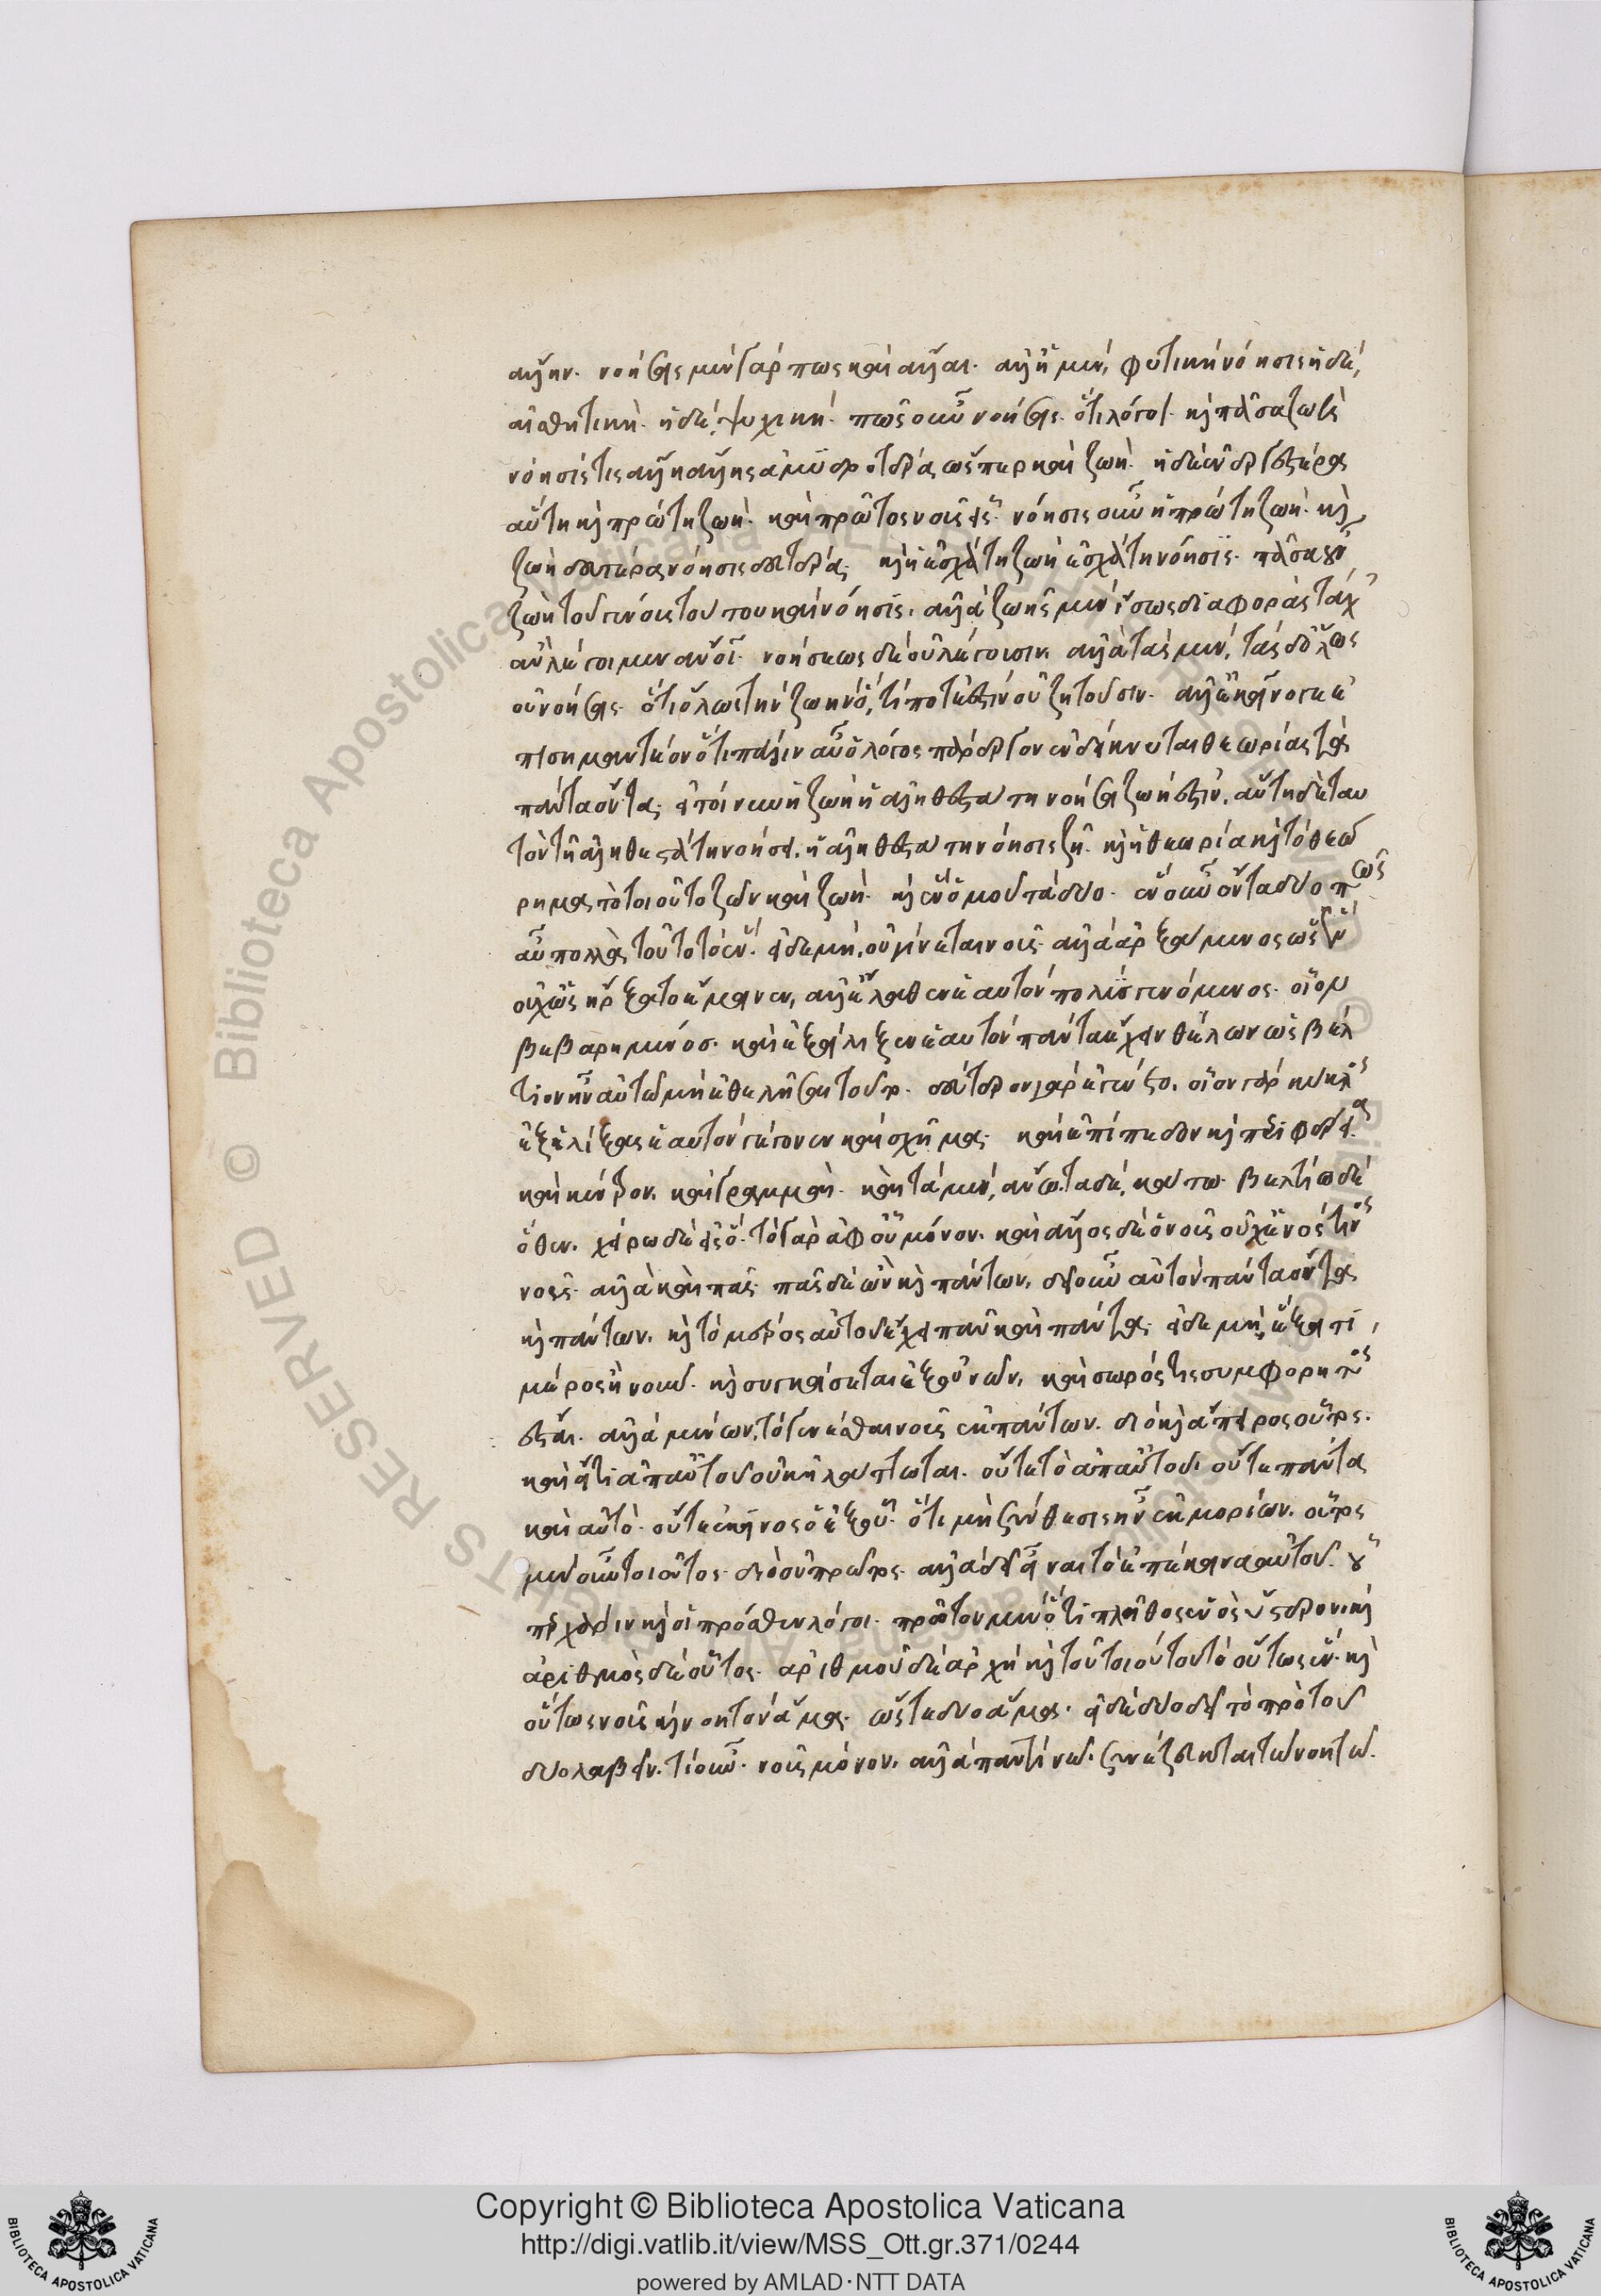 ἄλλην. νοήσεις μὲν γάρ πως καὶ ἄλλαι. ἀλλ' ἡ μὲν, φυτικὴ νόησις ἡ δὲ,
αἰσθητικὴ. ἡ δὲ, ψυχικὴ. πῶς οὖν νοήσεις. ὅτι λόγοι. καὶ πᾶσα ζωὴ
νόησίς τις ἄλλη ἄλλης ἀμυδροτέρα ὥσπερ καὶ ζωὴ. ἡ δὲ ἐναργεστέρα
αὕτη καὶ πρώτη ζωὴ. καὶ πρῶτος νοῦς εἷς. νόησις οὖν ἡ πρώτη ζωὴ. καὶ
ζωὴ δευτέρα νόησις δευτέρα. καὶ ἡ ἐσχάτη ζωὴ ἐσχάτη νόησις. πᾶσα οὖν
ζωὴ τοῦ γένους τούτου καὶ νόησις. ἀλλὰ ζωῆς μὲν ἴσως διαφορὰς τάχ'
ἂν λέγοιμεν ἄνοι. νοήσεως δὲ οὐ λέγουσιν. ἀλλὰ τὰς μὲν, τὰς δ' ὅλως
οὐ νοήσεις. ὅτι ὅλως τὴν ζωὴν ὅ, τί ποτέ ἐστιν οὐ ζητοῦσιν. ἀλλ' ἐκεῖνό γε ἐ
πισημαντέον ὅτι πάλιν αὖ ὁ λόγος πάρεργον ἐνδείκνυται θεωρίας τὰ
πάντα ὄντα. εἰ τοίνυν ἡ ζωὴ ἡ ἀληθεστάτη νοήσει ζωή ἐστιν. αὕτη δὲ ταυ
τὸν τῇ ἀληθεστάτῃ νοήσει. ἡ ἀληθεστάτη νόησις ζῇ. καὶ ἡ θεωρία καὶ τὸ θεώ
ρημα τὸ τοιοῦτο ζῶν καὶ ζωὴ. καὶ ἓν ὁμοῦ τὰ δύο. ἓν οὖν ὄντα δύο πῶς
αὖ πολλὰ τοῦτο τὸ ἕν. εἰ δὲ μὴ, οὐ γίνεται νοῦς. ἀλλὰ ἀρξάμενος ὡς ἓν
οὐχ ὡς ἤρξατο ἔμεινεν, ἀλλ' ἔλαθεν ἑαυτὸν πολὺς γενόμενος. οἷον
βεβαρημένος. καὶ ἐξείλιξεν ἑαυτὸν πάντα ἔχειν θέλων ὡς βέλ
τιον ἦν αὐτῷ μὴ ἐθελῆσαι τοῦτο. δεύτερον γὰρ ἐγένετο. οἷον γὰρ κύκλος
ἐξελίξας ἑαυτὸν γέγονεν καὶ σχῆμα. καὶ ἐπίπεδον καὶ περιφέρεια.
καὶ κέντρον. καὶ γραμμαὶ. καὶ τὰ μὲν, ἄνω. τὰ δὲ, κάτω. βελτίω δὲ
ὅθεν. χείρω δὲ εἰς ὅ. τὸ γὰρ ἀφ' οὗ μόνον. καὶ ἄλλος δὲ ὁ νοῦς οὐχ ἑνός τινος
νοῦς. ἀλλὰ καὶ πᾶς. πᾶς δὲ ὢν καὶ πάντων. δεῖ οὖν αὐτὸν πάντα ὄντα
καὶ πάντων. καὶ τὸ μέρος αὐτοῦ ἔχειν πᾶν καὶ πάντα. εἰ δὲ μὴ, ἕξει τι
μέρος ἢ νοῦν. καὶ συγκείσεται ἐξ οὐ νῶν. καὶ σωρός τις συμφορητὸς
ἔσται. ἀλλὰ μένων. τὸ γενέσθαι νοῦς ἐκ πάντων. διὸ καὶ ἄπειρος οὗτος.
καὶ εἴ τι ἀπ' αὐτοῦ οὐκ ἠλάττωται. οὔτε τὸ ἀπ' αὐτοῦ. οὔτε πάντα
καὶ αὐτὸ. οὔτε ἐκεῖνος ὁ ἐξ οὗ. ὅτι μὴ σύνθεσις ἦν ἐκ μορίων. οὗτος
μὲν οὖν τοιοῦτος. διὸ οὐ πρῶτος. ἀλλὰ δεῖ εἶναι τὸ ἐπέκεινα αὐτοῦ. οὗ
περ χάριν καὶ οἱ πρόσθεν λόγοι. πρῶτον μὲν ὅτι πλῆθος ἑνὸς ὕστερον. καὶ
ἀριθμὸς δὲ οὗτος. ἀριθμοῦ δὲ ἀρχὴ καὶ τοῦ τοιούτου τὸ οὕτως ἕν. καὶ
οὕτως νοῦς καὶ νοητὸν ἅμα. ὥστε δύο ἅμα. εἰ δὲ δύο δεῖ τὸ πρὸ τοῦ
δύο λαβεῖν. τί οὖν. νοῦς μόνον. ἀλλὰ παντὶ νῷ. συνέζευκται τὸ νοητόν.